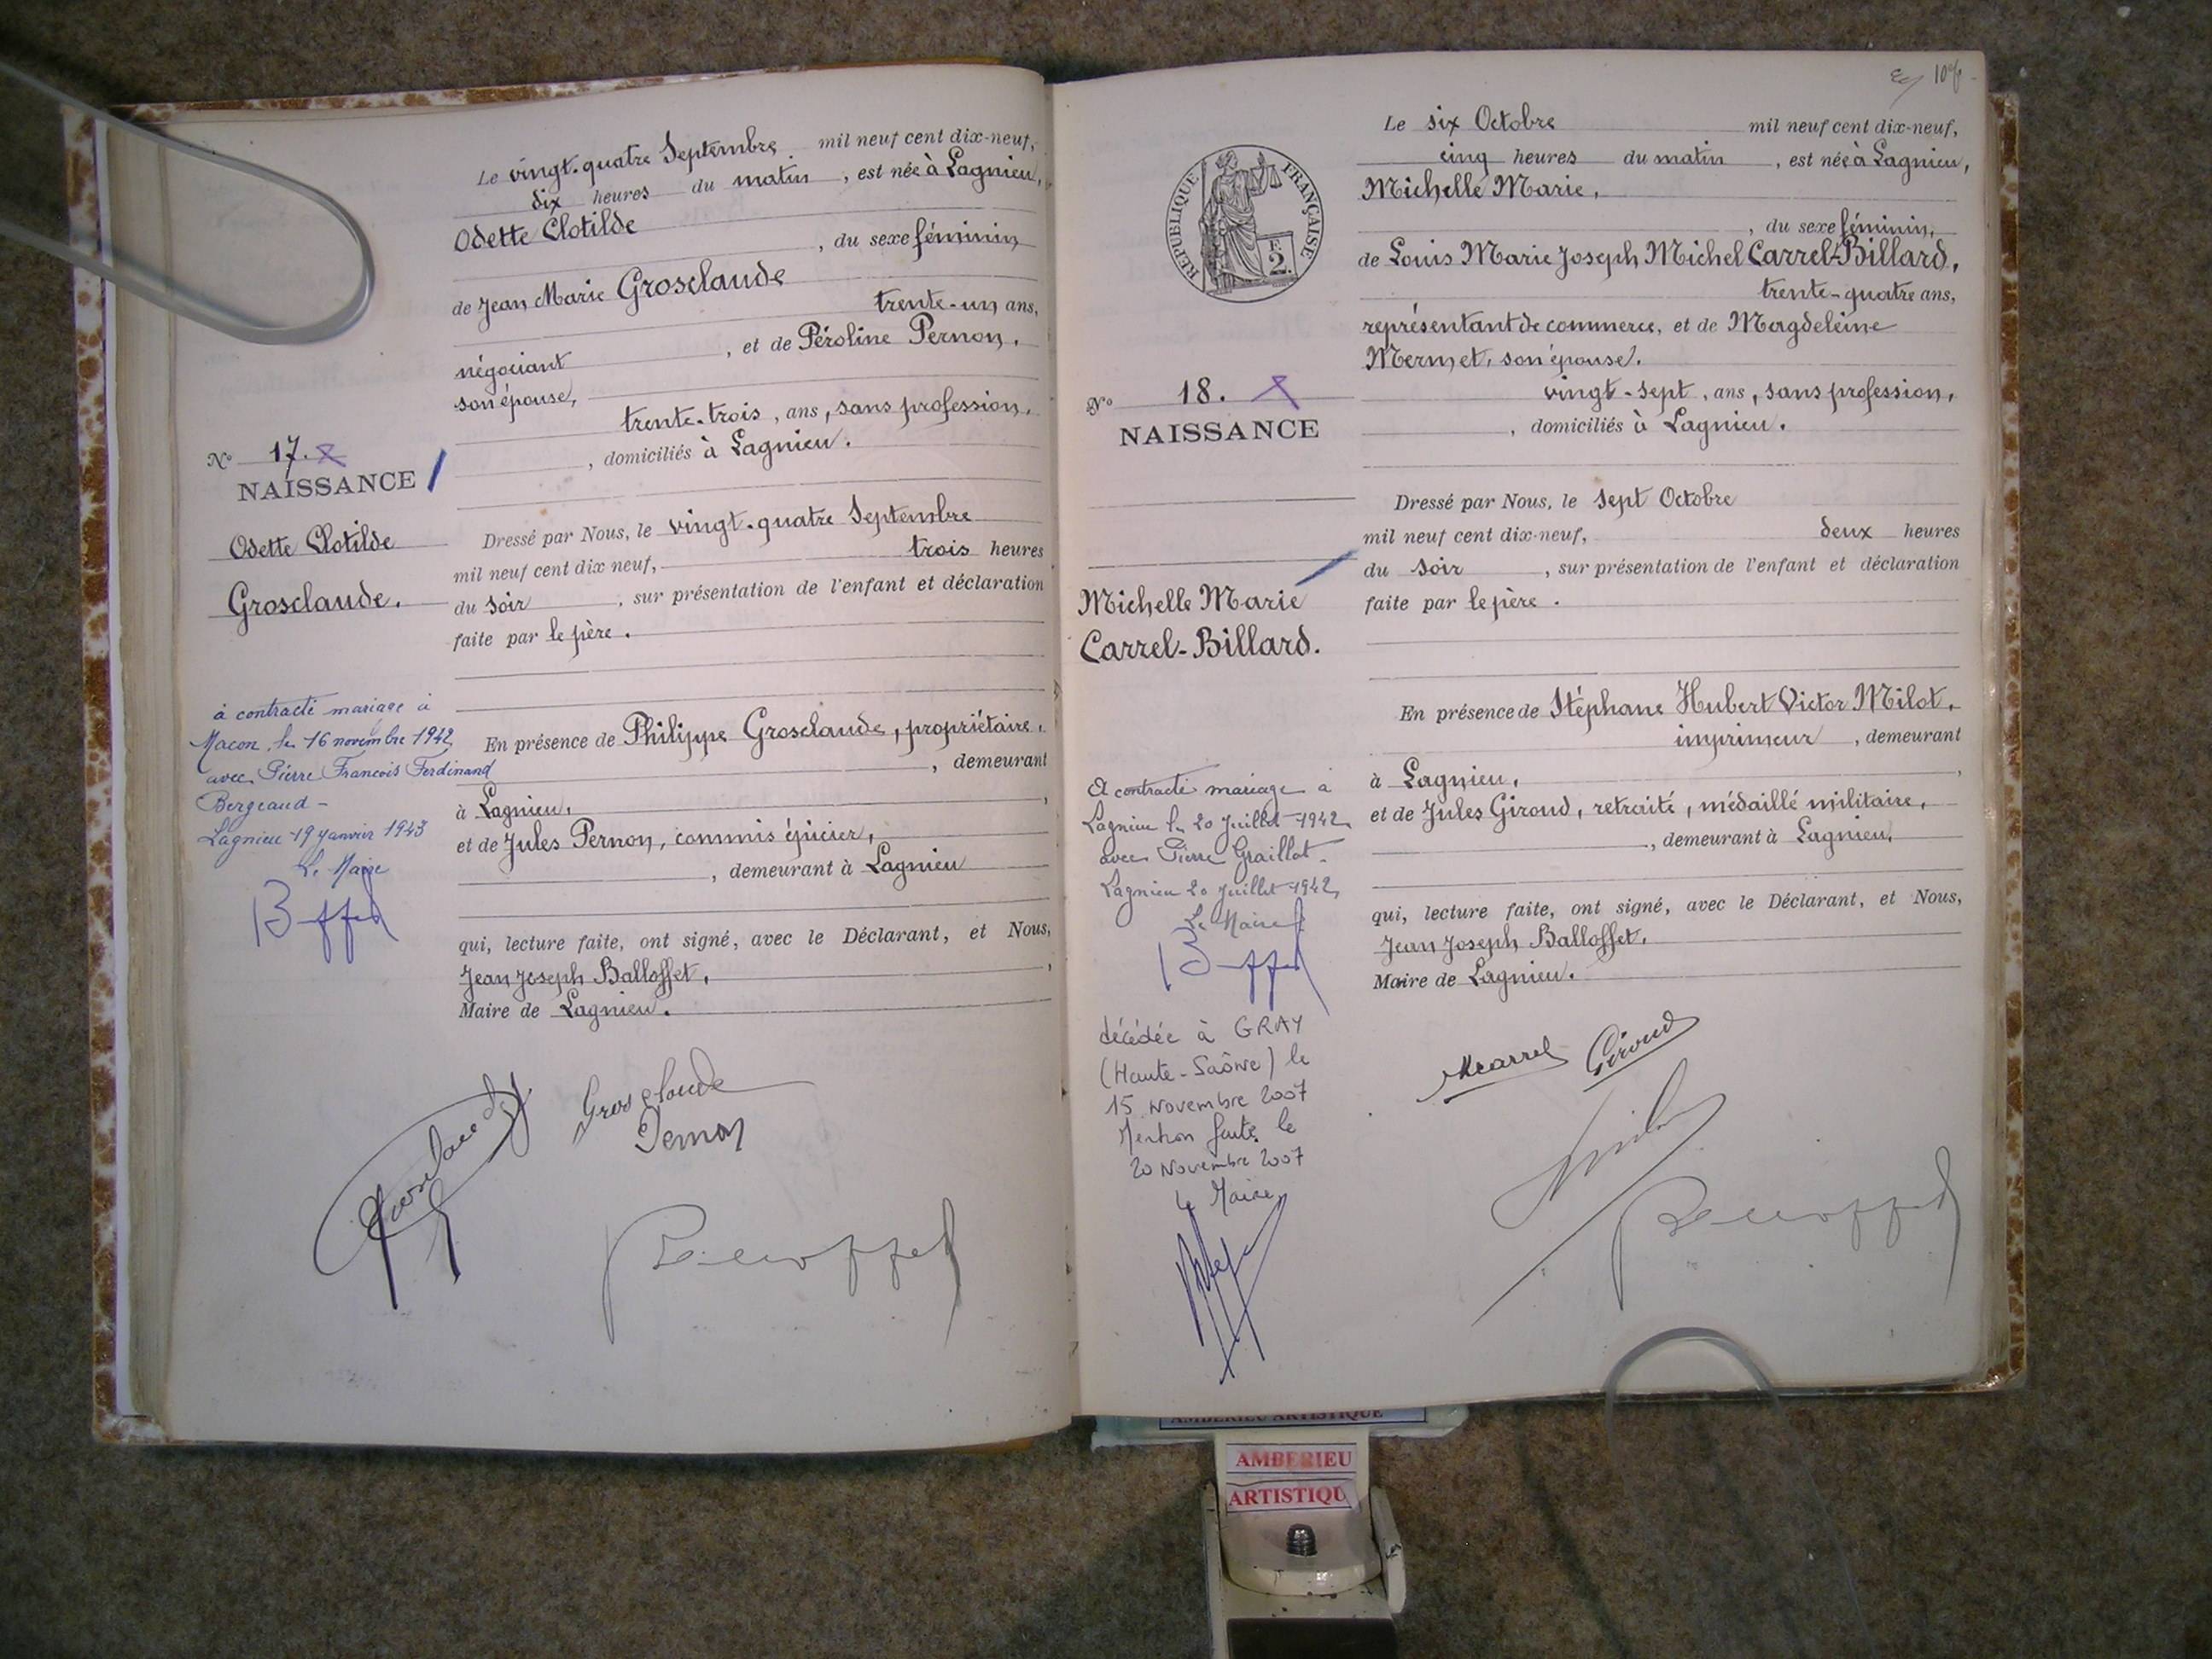 Le vingt-quatre Septembre mil neuf cent dix-neuf,
dix heures du matin, est née à Lagnieu,
Odette Clotilde
, du sexe féminin
de Jean Marie Grosclaude
trente-un ans,
négociant, et de Péroline Pernon,
son épouse,
trente-trois, ans, sans profession,
, domiciliés à Lagnieu.
N° 17.
NAISSANCE
Odette Clotilde
Grosclaude.
Dressé par Nous, le vingt-quatre Septembre
mil neuf cent dix neuf, trois heures
du soir, sur présentation de l'enfant et déclaration
faite par le père.
à contracté mariage à
Macon, le 16 novembre 1942
avec Pierre François Ferdinand
Bergeaud -
Lagnieu 19 janvier 1943
Le Maire
En présence de Philippe Grosclaude, propriétaire,
, demeurant
à Lagnieu,
et de Jules Pernon, commis épicier,
, demeurant à Lagnieu
qui, lecture faite, ont signé, avec le Déclarant, et Nous,
Jean Joseph Balloffet,
Maire de Lagnieu.
Grosclaude
Grosclaude
Pernon
RÉPUBLIQUE FRANÇAISE
F.
2.
Le six Octobre mil neuf cent dix-neuf,
cinq heures du matin, est née à Lagnieu,
Michelle Marie,
, du sexe féminin,
de Louis Marie Joseph Michel Carrel-Billard,
trente-quatre ans,
représentant de commerce, et de Magdeleine
Mermet, son épouse,
vingt-sept, ans, sans profession,
, domiciliés à Lagnieu.
N° 18.
NAISSANCE
Michelle Marie
Carrel-Billard.
Dressé par Nous, le sept Octobre
mil neuf cent dix-neuf, deux heures
du soir, sur présentation de l'enfant et déclaration
faite par le père.
En présence de Stéphane Hubert Victor Milot,
imprimeur, demeurant
à Lagnieu,
et de Jules Giroud, retraité, médaillé militaire,
, demeurant à Lagnieu,
A contracté mariage à
Lagnieu le 20 Juillet 1942
avec Pierre Graillot.
Lagnieu 20 Juillet 1942
Le Maire
décédée à GRAY
(Haute-Saône) le
15 Novembre 2007
Mention faite le
20 Novembre 2007
Le Maire
qui, lecture faite, ont signé, avec le Déclarant, et Nous,
Jean Joseph Balloffet,
Maire de Lagnieu.
Mcarrel
Giroud
AMBERIEU ARTISTIQUE
AMBERIEU
ARTISTIQU